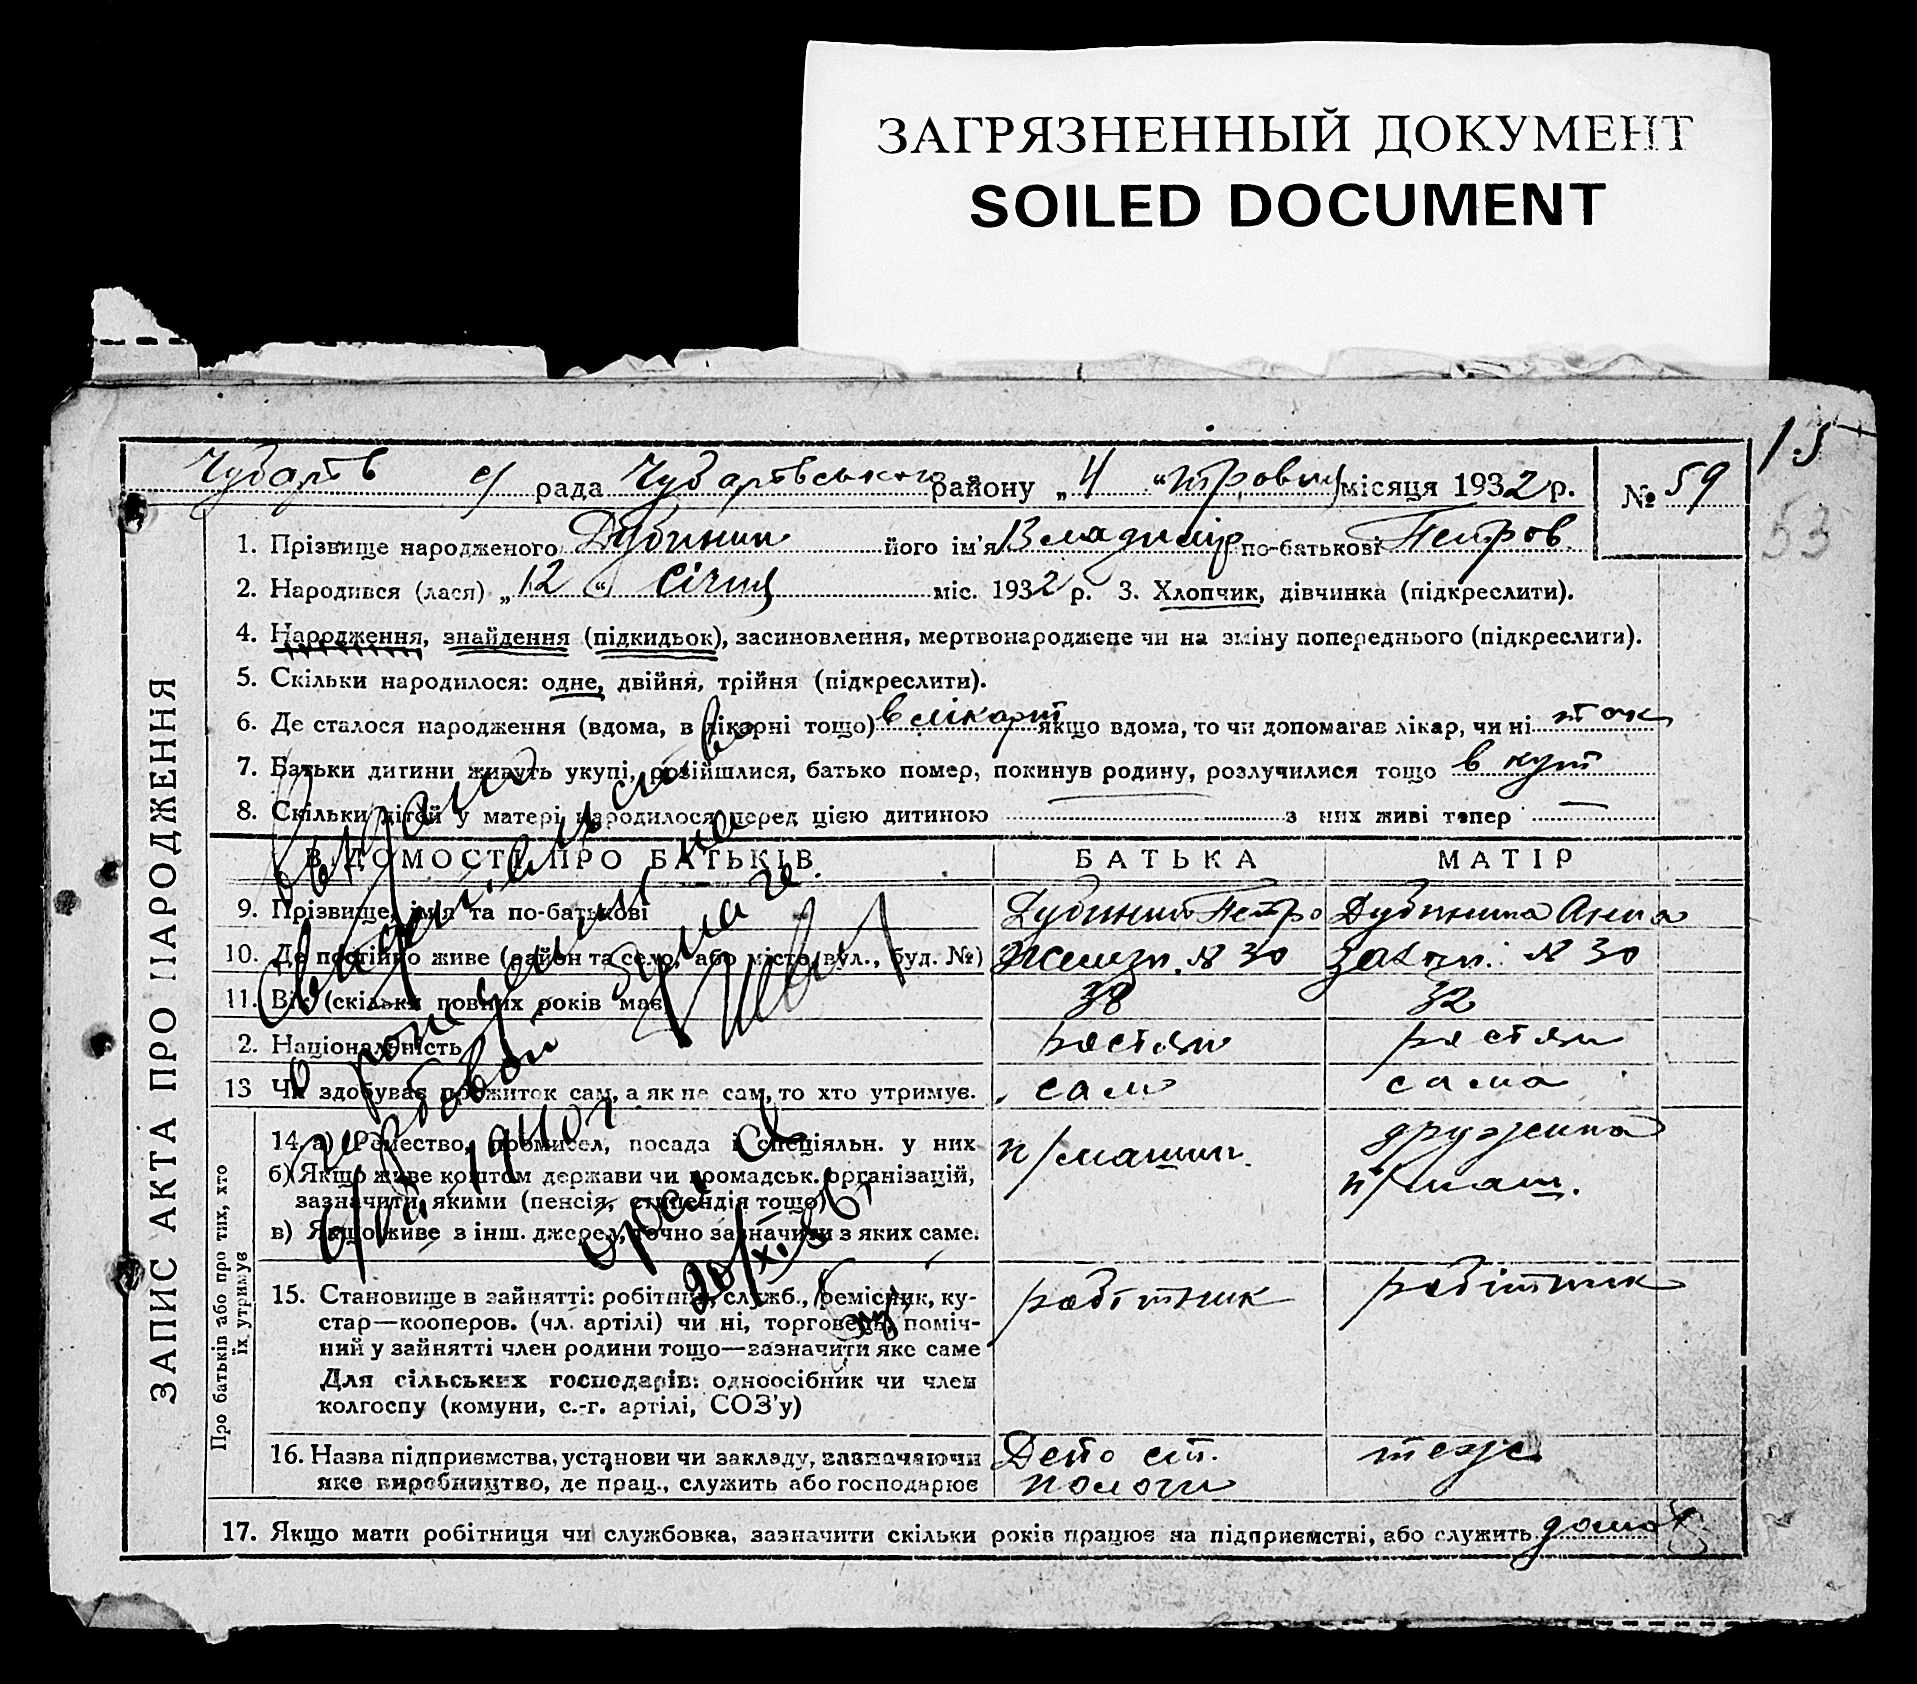 ЗАГРЯЗНЕННЫЙ ДОКУМЕНТ
SOILED DOCUMENT
15
53
рада Чубарівського району „4 “ місяця 1932 р. № 59
1. Прізвище народженого Дубинин його ім'я Владимір по-батькові Петров.
2. Народився (лася) „12 “ січня міс. 1932 р. 3. Хлопчик, дівчинка (підкреслити).
4. Народження, знайдення (підкидьок), засиновлення, мертвонароджене чи на зміну попереднього (підкреслити).
5. Скільки народилося: одне, двійня, трійня (підкреслити).
6. Де сталося народження (вдома, в лікарні тощо) в лікарні якщо вдома, то чи допомагав лікар, чи ні так
7. Батьки дитини живуть укупі, розійшлися, батько помер, покинув родину, розлучилися тощо в куп
8. Скільки дітей у матері народилося перед цією дитиною — з них живі тепер —
ВІДОМОСТІ ПРО БАТЬКІВ. БАТЬКА МАТІР
9. Прізвище, ім'я та по-батькові Дубинин Петро Дубинина Анна
10. Де постійно живе (район та село, або місто, вул., буд. №) № 30 № 30
11. Вік (скільки повних років має) 38 32
2. Національність
13 Чи здобуває прожиток сам, а як не сам, то хто утримує. сам сама
14. а) Ремество, промисел, посада і спеціяльн. у них п/машин. дружина
б) Якщо живе коштом держави чи громадськ. організацій, п/маш.
зазначити якими (пенсія, стипендія тощо)
в) Якщо живе з інш. джерел, точно зазначити з яких саме.
15. Становище в зайнятті: робітник, служб., ремісник, ку- робітник робітник
стар—кооперов. (чл. артілі) чи ні, торговець, поміч-
ний у зайнятті член родини тощо—зазначити яке саме
Для сільських господарів: одноосібник чи член
колгоспу (комуни, с.-г. артілі, СОЗ'у)
16. Назва підприємства, установи чи закладу, зазначаючи Депо ст. теж
яке виробництво, де прац., служить або господарює Пологи
17. Якщо мати робітниця чи службовка, зазначити скільки років працює на підприємстві, або служить дома
ЗАПИС АКТА ПРО НАРОДЖЕННЯ
Про батьків або про тих, хто
їх утримує
выдано
свидетельство
о рождении на
гербовой бумаге
1940 г